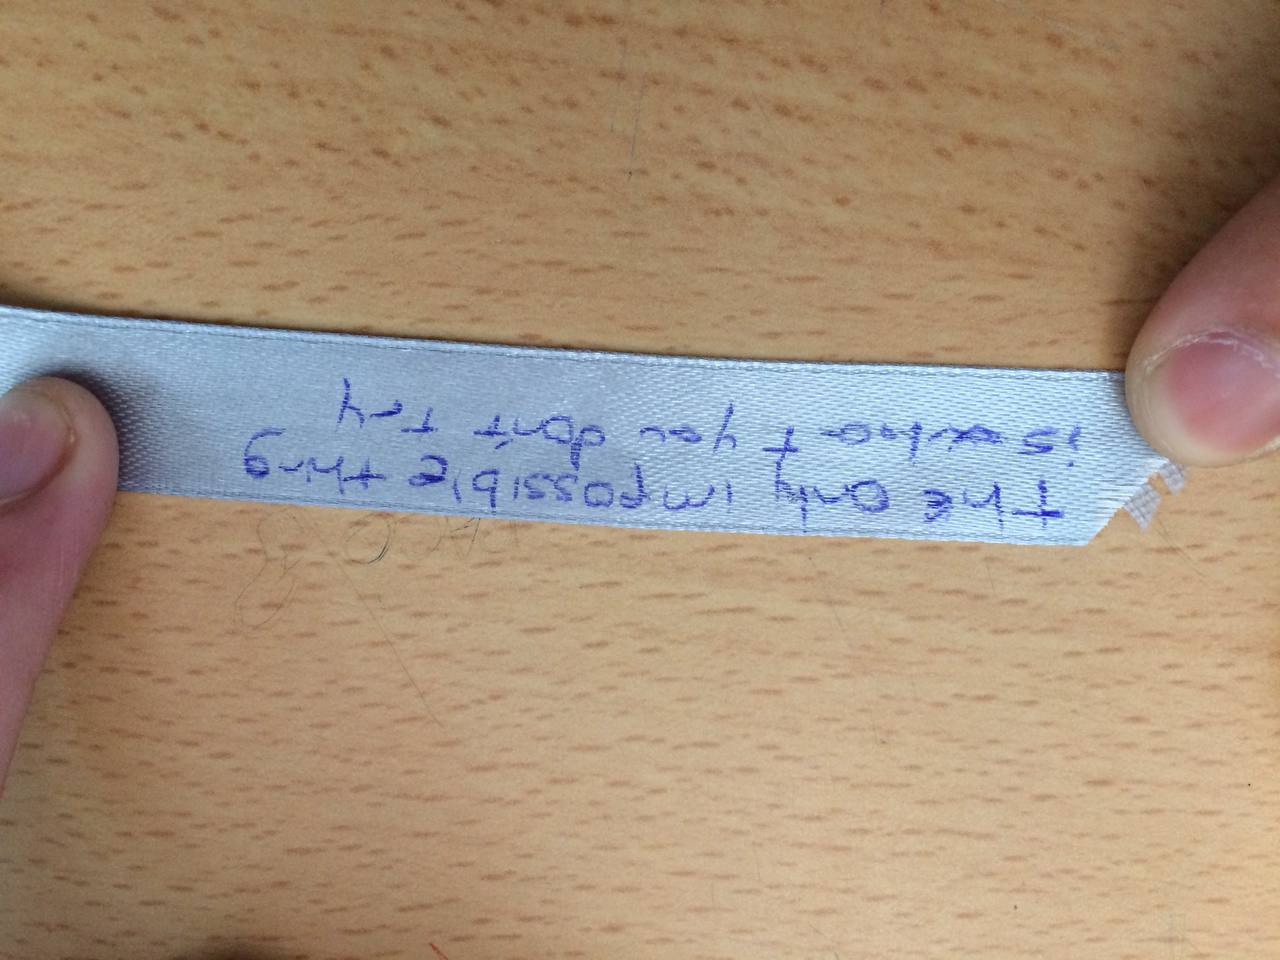 The only impossible thing
is what you dont try